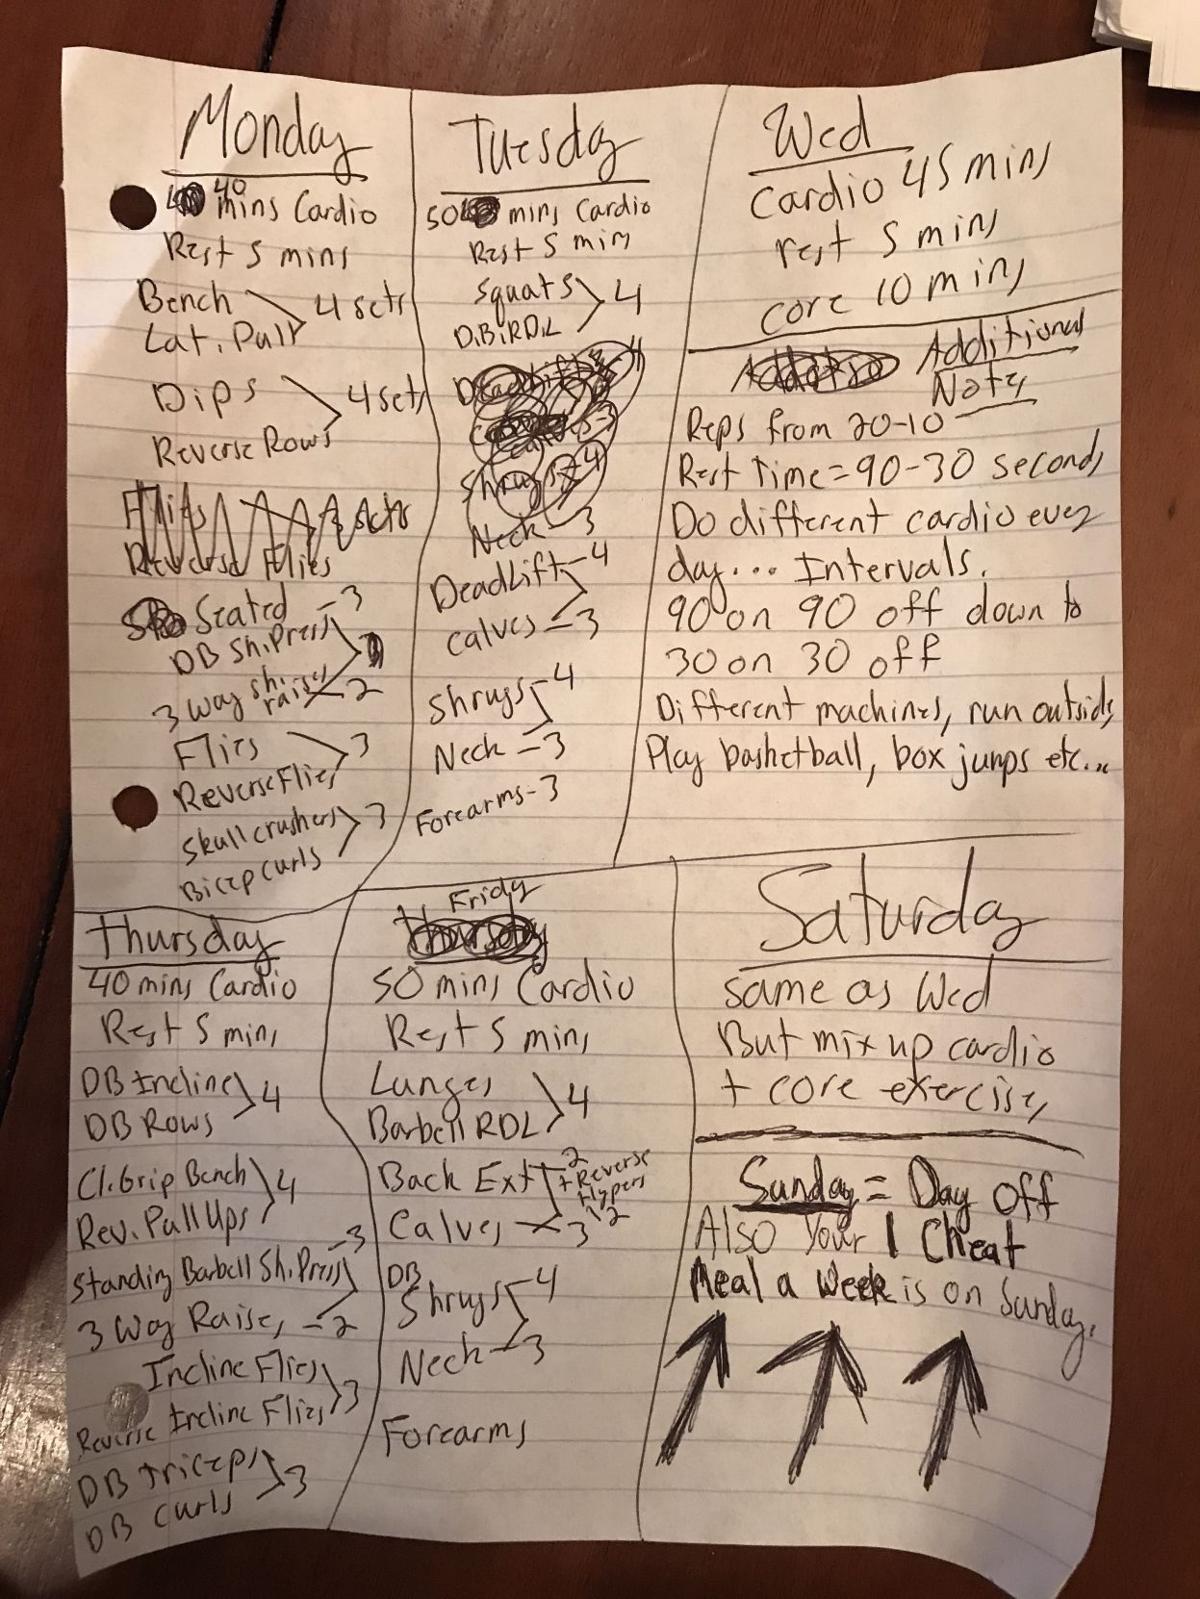 Monday
40 mins Cardio
Rest 5 mins
Bench
Lat. Pull
4 sets
Dips
Reverse Rows
4 sets
Flies
Reverse Flies
sets
Seated
DB Sh. Press
-3
3 way sh. raises
-2
Flies
Reverse Flies
3
Skull crushers
Bicep curls
3
Tuesday
50 mins Cardio
Rest 5 mins
Squats
D.B. RDL
4
Shrugs 4
Neck - 3
DeadLift - 4
Calves - 3
Shrugs - 4
Neck - 3
Forearms - 3
Wed
Cardio 45 mins
rest 5 mins
core 10 mins
Additional
Notes
Reps from 20-10
Rest Time = 90-30 seconds
Do different cardio every
day... Intervals.
90 on 90 off down to
30 on 30 off
Different machines, run outside,
Play basketball, box jumps etc...
Thursday
40 mins Cardio
Rest 5 mins
DB Incline
DB Rows
4
Cl. Grip Bench
Rev. Pull Ups
4
Standing Barbell Sh. Press - 3
3 Way Raises - 2
Incline Flies
Reverse Incline Flies
3
DB triceps
DB curls
3
Friday
Thursday
50 mins Cardio
Rest 5 mins
Lunges
Barbell RDL
4
Back Ext - 2
+ Reverse
Hypers
2
Calves - 3
DB
Shrugs - 4
Neck - 3
Forearms
Saturday
same as Wed
But mix up cardio
+ core exercises
Sunday = Day off
Also Your 1 Cheat
Meal a Week is on Sunday.